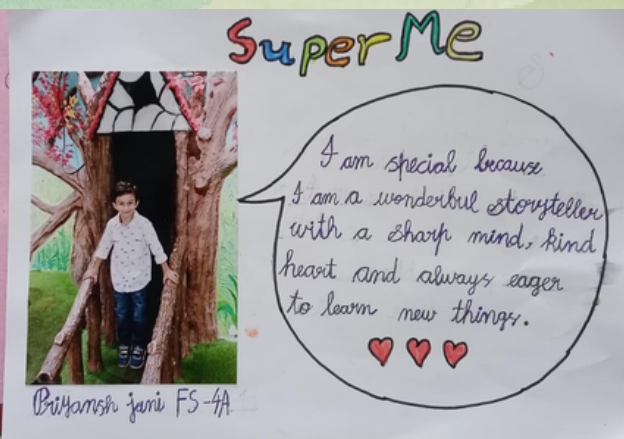 Super Me
I am special because
I am a wonderful storyteller
with a sharp mind, kind
heart and always eager
to learn new things.
Priyansh jani FS-4A